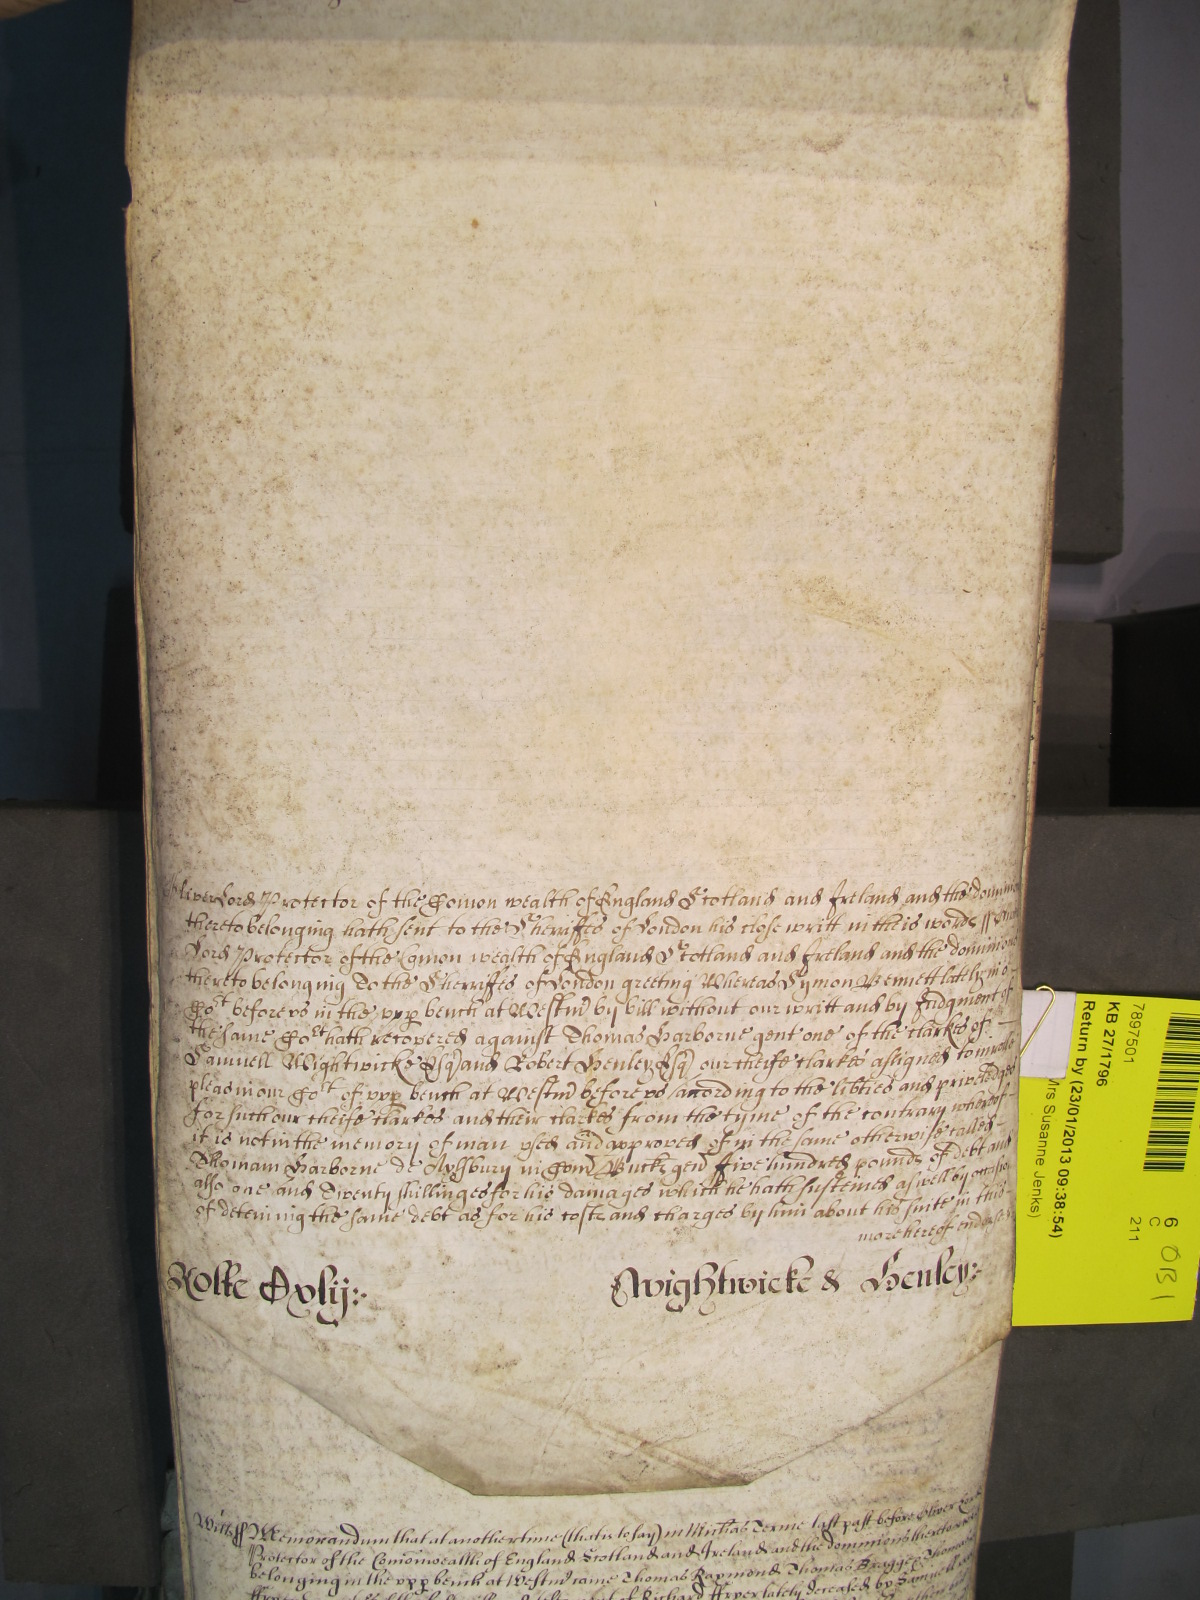 Oliver Lord Protector of the Comon wealth of England Scotland and Ireland and the dominions
thereto belonging hath sent to the Sherriffes of London his close writt in theis words ss
Lord Protector of the Comon wealth of England Scotland and Ireland and the dominions
thereto belonging To the Sherriffes of London greeting Whereas Symon Bennett lately in o
Cort before vs in the vpp bench at Westm by bill without our writt and by Judgment of
the same Cort hath recovered against Thomas Harborne gent one of the clarkes of
Samuell Wightwicke Esq and Robert Henley Esq our cheife clarkes asigned to inrolle
pleas in our Cort of vpp bench at Westm before vs according to the libties and priviledges
for such our cheife clarkes and their clarkes from the tyme of the contrary whereof
it is not in the memory of man vsed and approved of in the same otherwise called
Thomam Harborne de Aylsbury in Com Buck gen Five hundred pounds of debt and
also one and Twenty shillinges for his damages which he hath susteined aswell by occasion
of deteining the same debt as for his costs and charges by him about his suite in this
more hereof endorse
Rolle Oxly:
Wightwicke & Henley:
Witts ss Memorandum that at another time (that is to say) in Michas Terme last past before Oliver Lord
Protector of the Comonwealth of England Scotland and Ireland and the dominions thereto
belonging in the vpp bench at Westm came Thomas Raymond Thomas Bragge Thomas
of Richard ffryer lately deceased by Samuell
7897501
KB 27/1796
Return by (23/01/2013 09:38:54)
Mrs Susanne Jenks)
6
C
211
OB1